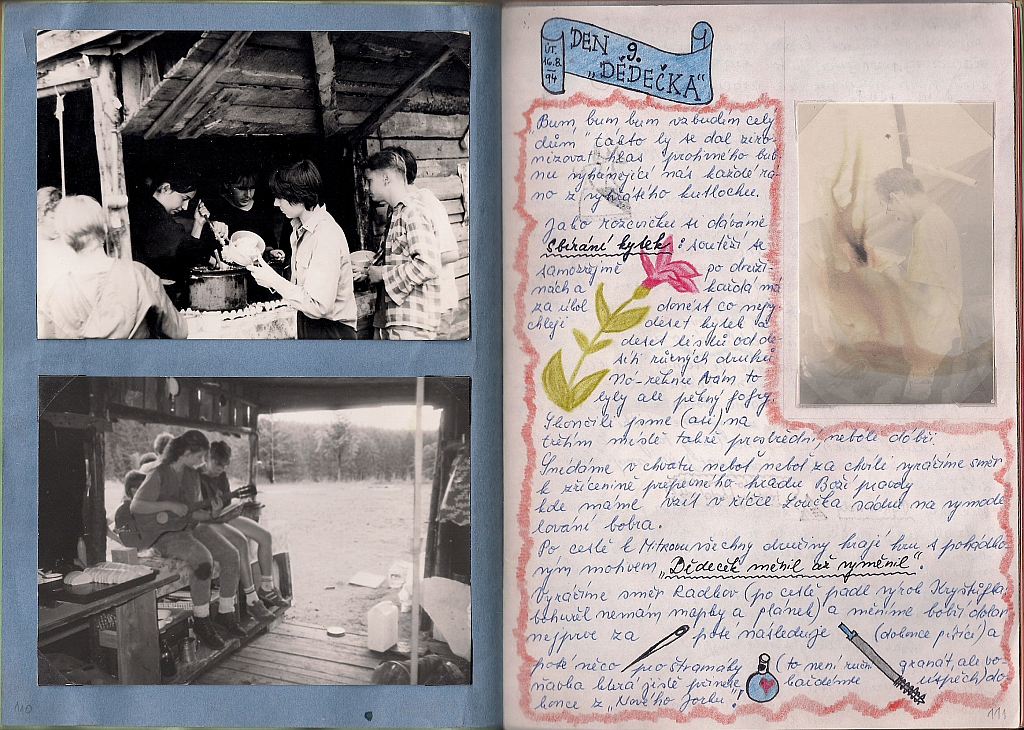 110
ÚT.
16.8.
94
DEN 9.
„DĚDEČKA“
Bum, bum bum vzbudím celý
dům“ takto by se dal
hlas prohrného bub
nu vyhánějící nás každé rá
no z vyhřátého kutlochu.
Jako rozcvičku si dáváme
sbírání kytek: soutěží se
samozřejmě po druži-
nách a každá má
za úkol donést co nejry
chleji deset kytek a
deset listů od de
síti různých druhů
No-řeknu Vám, to
byly ale pěkný
Skončili jsme (asi) na
třetím místě takže prostřední, neboli dobří.
Snídáme v chvatu neboť neboť za chvíli vyrážíme směr
k zřícenině hradu Boží pravdy
kde máme vzít v říčce Loučka sádru na vymode
lování bobra.
Po cestě k Mitrovu všechny družiny hrají hru s pohádko-
vým motivem „Dědeček měnil až vyměnil“.
Vyrážíme směr Radkov (po cestě padl výrok
bohužel nemám mapky a plánek) a měníme bobří dolar
nejprve za poté následuje (dokonce píšící) a
poté něco pro štramáky (to není ruční granát, ale vo-
ňavka která jistě přinese každému úspěch) do
konce z „Nového Yorku“!
111